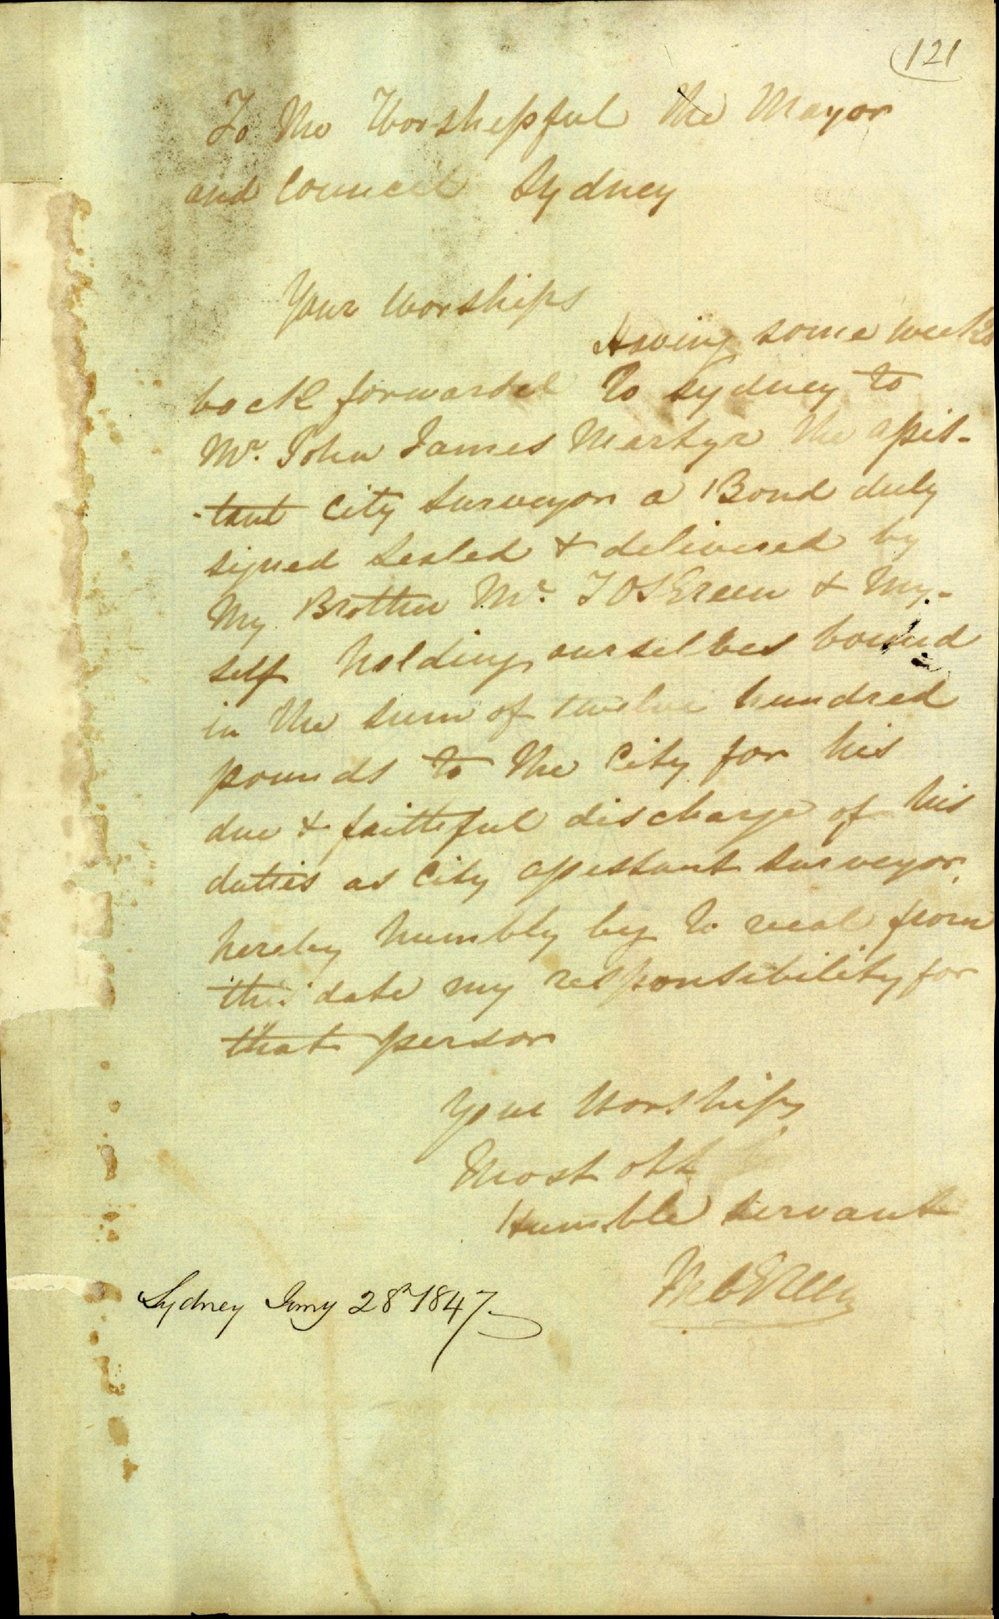 121
To the Worshepful the Mayor
and Council Sydney
Your Worships
Having some weeks
back forwarded to Sydney to
Mr. John James Martyr the assis-
-tant City Surveyor a Bond duly
signed sealed & delivered by
My Brother Mr. Green & My-
self holding ourselves bound
in the sum of twelve hundred
pounds to the City for his
due & faithful discharge of his
duties as City assistant Surveyor,
hereby humbly beg to from
this date my responsibility for
that person
Your Worships
Most obt
Humble Servant
Green
Sydney Jany 28th 1847